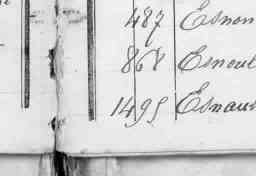 487 Esnon
868 Esnoul
1495 Esnaul